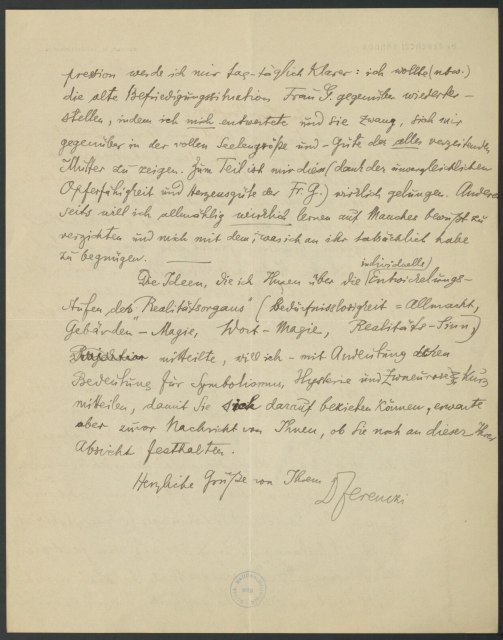 pression werde ich mir tag-täglich klarer: ich wollte (ubw.)
die alte Befriedigungssituation Frau G. gegenüber wiederher-
stellen, indem ich mich entwertete und sie zwang, sich mir
gegenüber in der vollen Seelengröße und -Güte der alles verzeihenden
Mutter zu zeigen. Zum Teil ist mir dies (dank der unvergleichlichen
Opferfähigkeit und Herzensgüte der Fr. G.) wirklich gelungen. Anderer-
seits will ich allmählig wirklich lernen auf Manches bewußt zu
verzichten und mich mit dem, was ich an ihr tatsächlich habe
zu begnügen.
Die Ideen, die ich Ihnen über die (individuelle) Entwickelungs-
stufen des "Realitätsorgans" (Bedürfnislosigkeit = Allmacht,
Gebärden-Magie, Wort-Magie, Realitäts-Sinn)
Projektion mitteilte, will ich - mit Andeutung deren
Bedeutung für Symbolismus, Hysterie und Zwneurose kurz
mitteilen, damit Sie sich darauf beziehen können, erwarte
aber zuvor Nachricht von Ihnen, ob Sie noch an dieser Ihrer
Absicht festhalten.
Herzliche Grüße von Ihrem
Dr Ferenczi